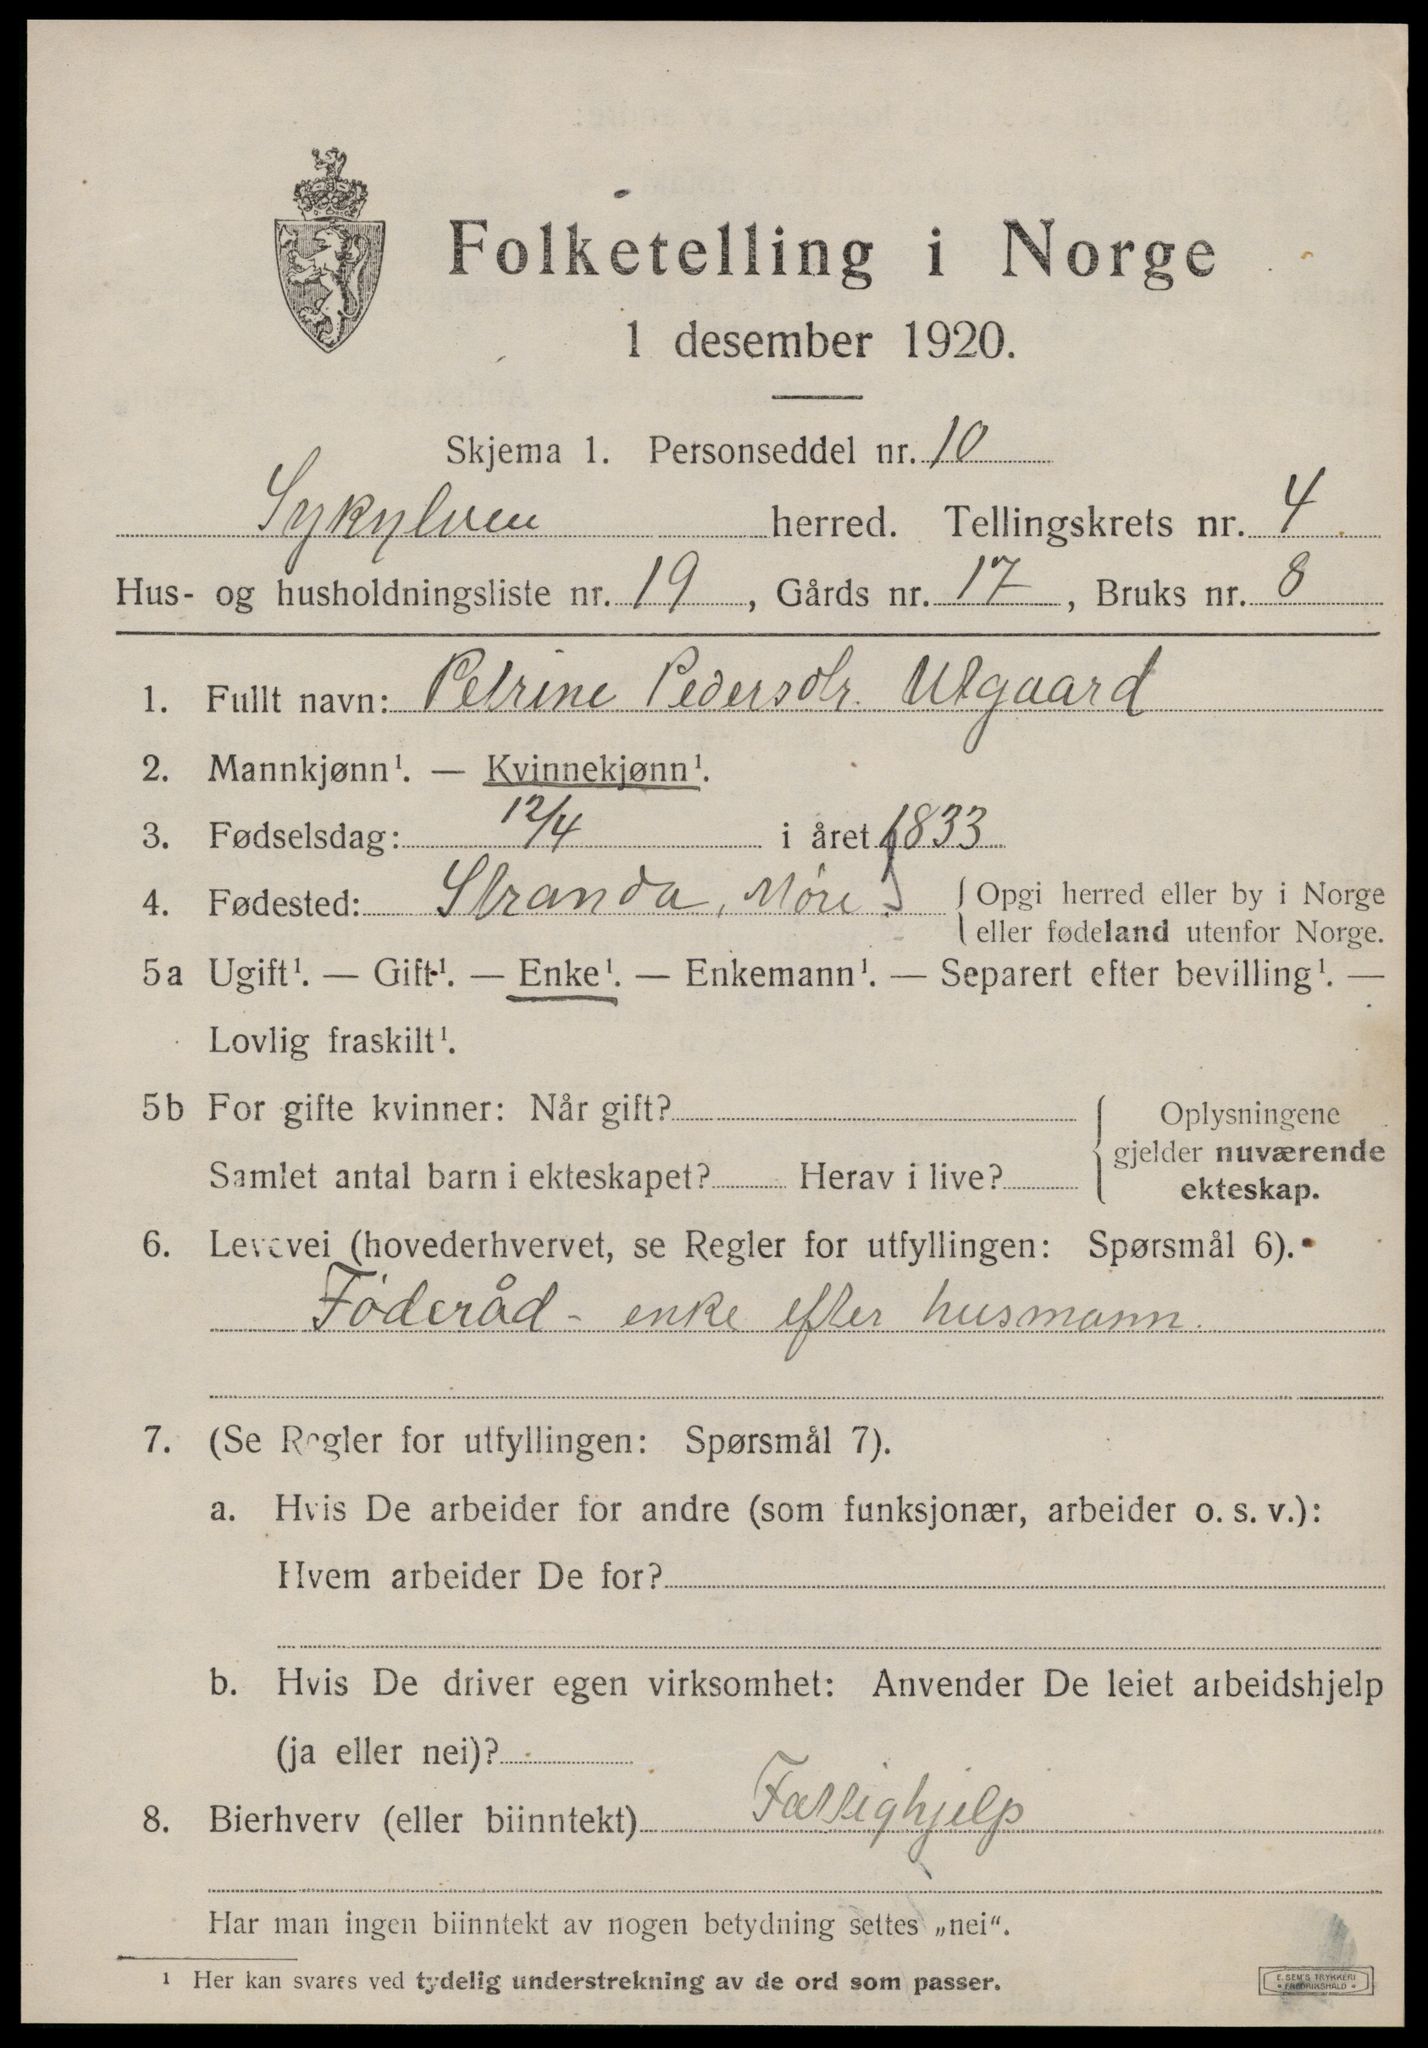 Folketelling i Norge
1 desember 1920.
Skjema 1. Personseddel nr. 10
Sykylven herred. Tellingskrets nr. 4
Hus- og husholdningsliste nr. 19, Gårds nr. 17, Bruks nr. 8
1. Fullt navn: Petrine Pedersdtr. Utgaard
2. Mannkjønn¹. — Kvinnekjønn¹.
3. Fødselsdag: 12/4 i året 1833
4. Fødested: Stranda, Møre { Opgi herred eller by i Norge
eller fødeland utenfor Norge.
5a Ugift¹. — Gift¹. — Enke¹. — Enkemann¹. — Separert efter bevilling¹. —
Lovlig fraskilt¹.
5b For gifte kvinner: Når gift?
Samlet antal barn i ekteskapet? Herav i live?
{ Oplysningene
gjelder nuværende
ekteskap.
6. Levevei (hovederhvervet, se Regler for utfyllingen: Spørsmål 6).
Føderåd - enke efter husmann.
7. (Se Regler for utfyllingen: Spørsmål 7).
a. Hvis De arbeider for andre (som funksjonær, arbeider o. s. v.):
Hvem arbeider De for?
b. Hvis De driver egen virksomhet: Anvender De leiet arbeidshjelp
(ja eller nei)?
8. Bierhverv (eller biinntekt) Fattighjelp
Har man ingen biinntekt av nogen betydning settes „nei“.
¹ Her kan svares ved tydelig understrekning av de ord som passer.
E. SEM'S TRYKKERI
FREDRIKSHALD